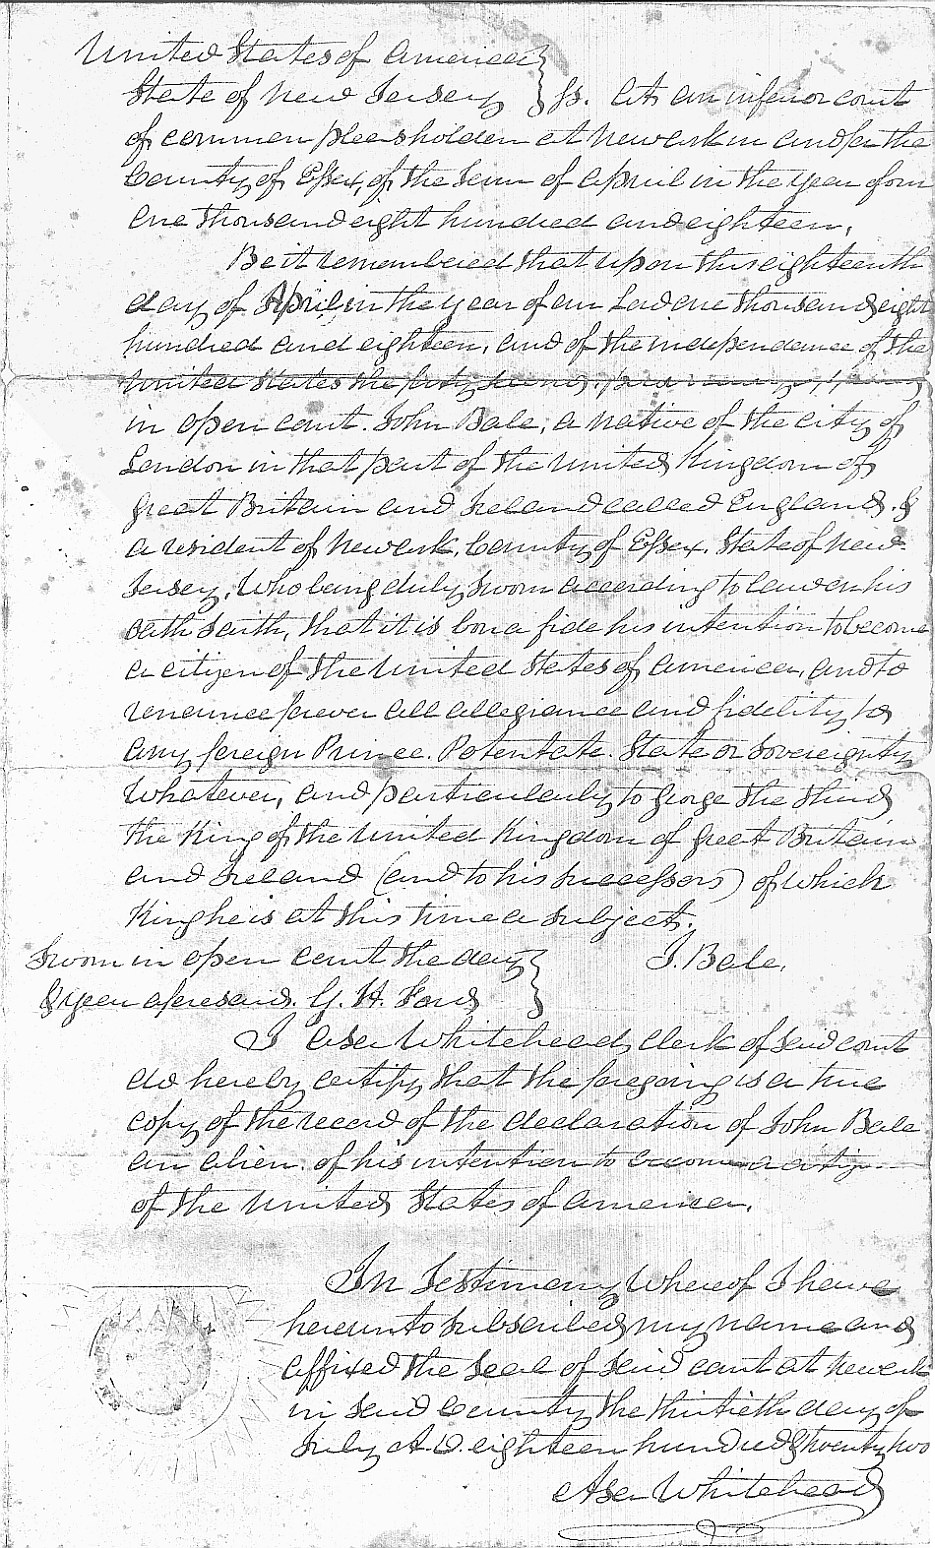 United States of America
State of New Jersey } ss. At an inferior court
of common pleas holden at Newark in and for the
County of Essex, of the term of April in the year of our
one thousand eight hundred and eighteen.
Be it remembered that upon this eighteenth
day of April in the year of our Lord one thousand eight
hundred and eighteen, and of the independance of the
United States the forty second,
in open court. John Bale, a native of the city of
London in that part of the United Kingdom of
Great Britain and Ireland called England, &
a resident of Newark, County of Essex. State of New
Jersey. Who being duly sworn according to law on his
oath saith, that it is bona fide his intention to become
a citizen of the United States of America, and to
renounce forever all allegiance and fidelity to
any foreign Prince. Potentate. State or Sovereignty
Whatever, and particularly to George the Third
the King of the United Kingdom of Great Britain
and Ireland (and to his successors) of which
King he is at this time a subject.
Sworn in open court the day } J. Bale.
& year aforesaid. G. H. Ford
I Asa Whitehead, clerk of said court
do hereby certify that the foregoing is a true
copy of the record of the declaration of John Bale
an alien. of his intention to become a citizen
of the United States of America.
In Testimony Whereof I have
hereunto subscribed my name and
affixed the seal of said court at Newark
in said County the thirtieth day of
July A.D. eighteen hundred & twenty two
Asa Whitehead